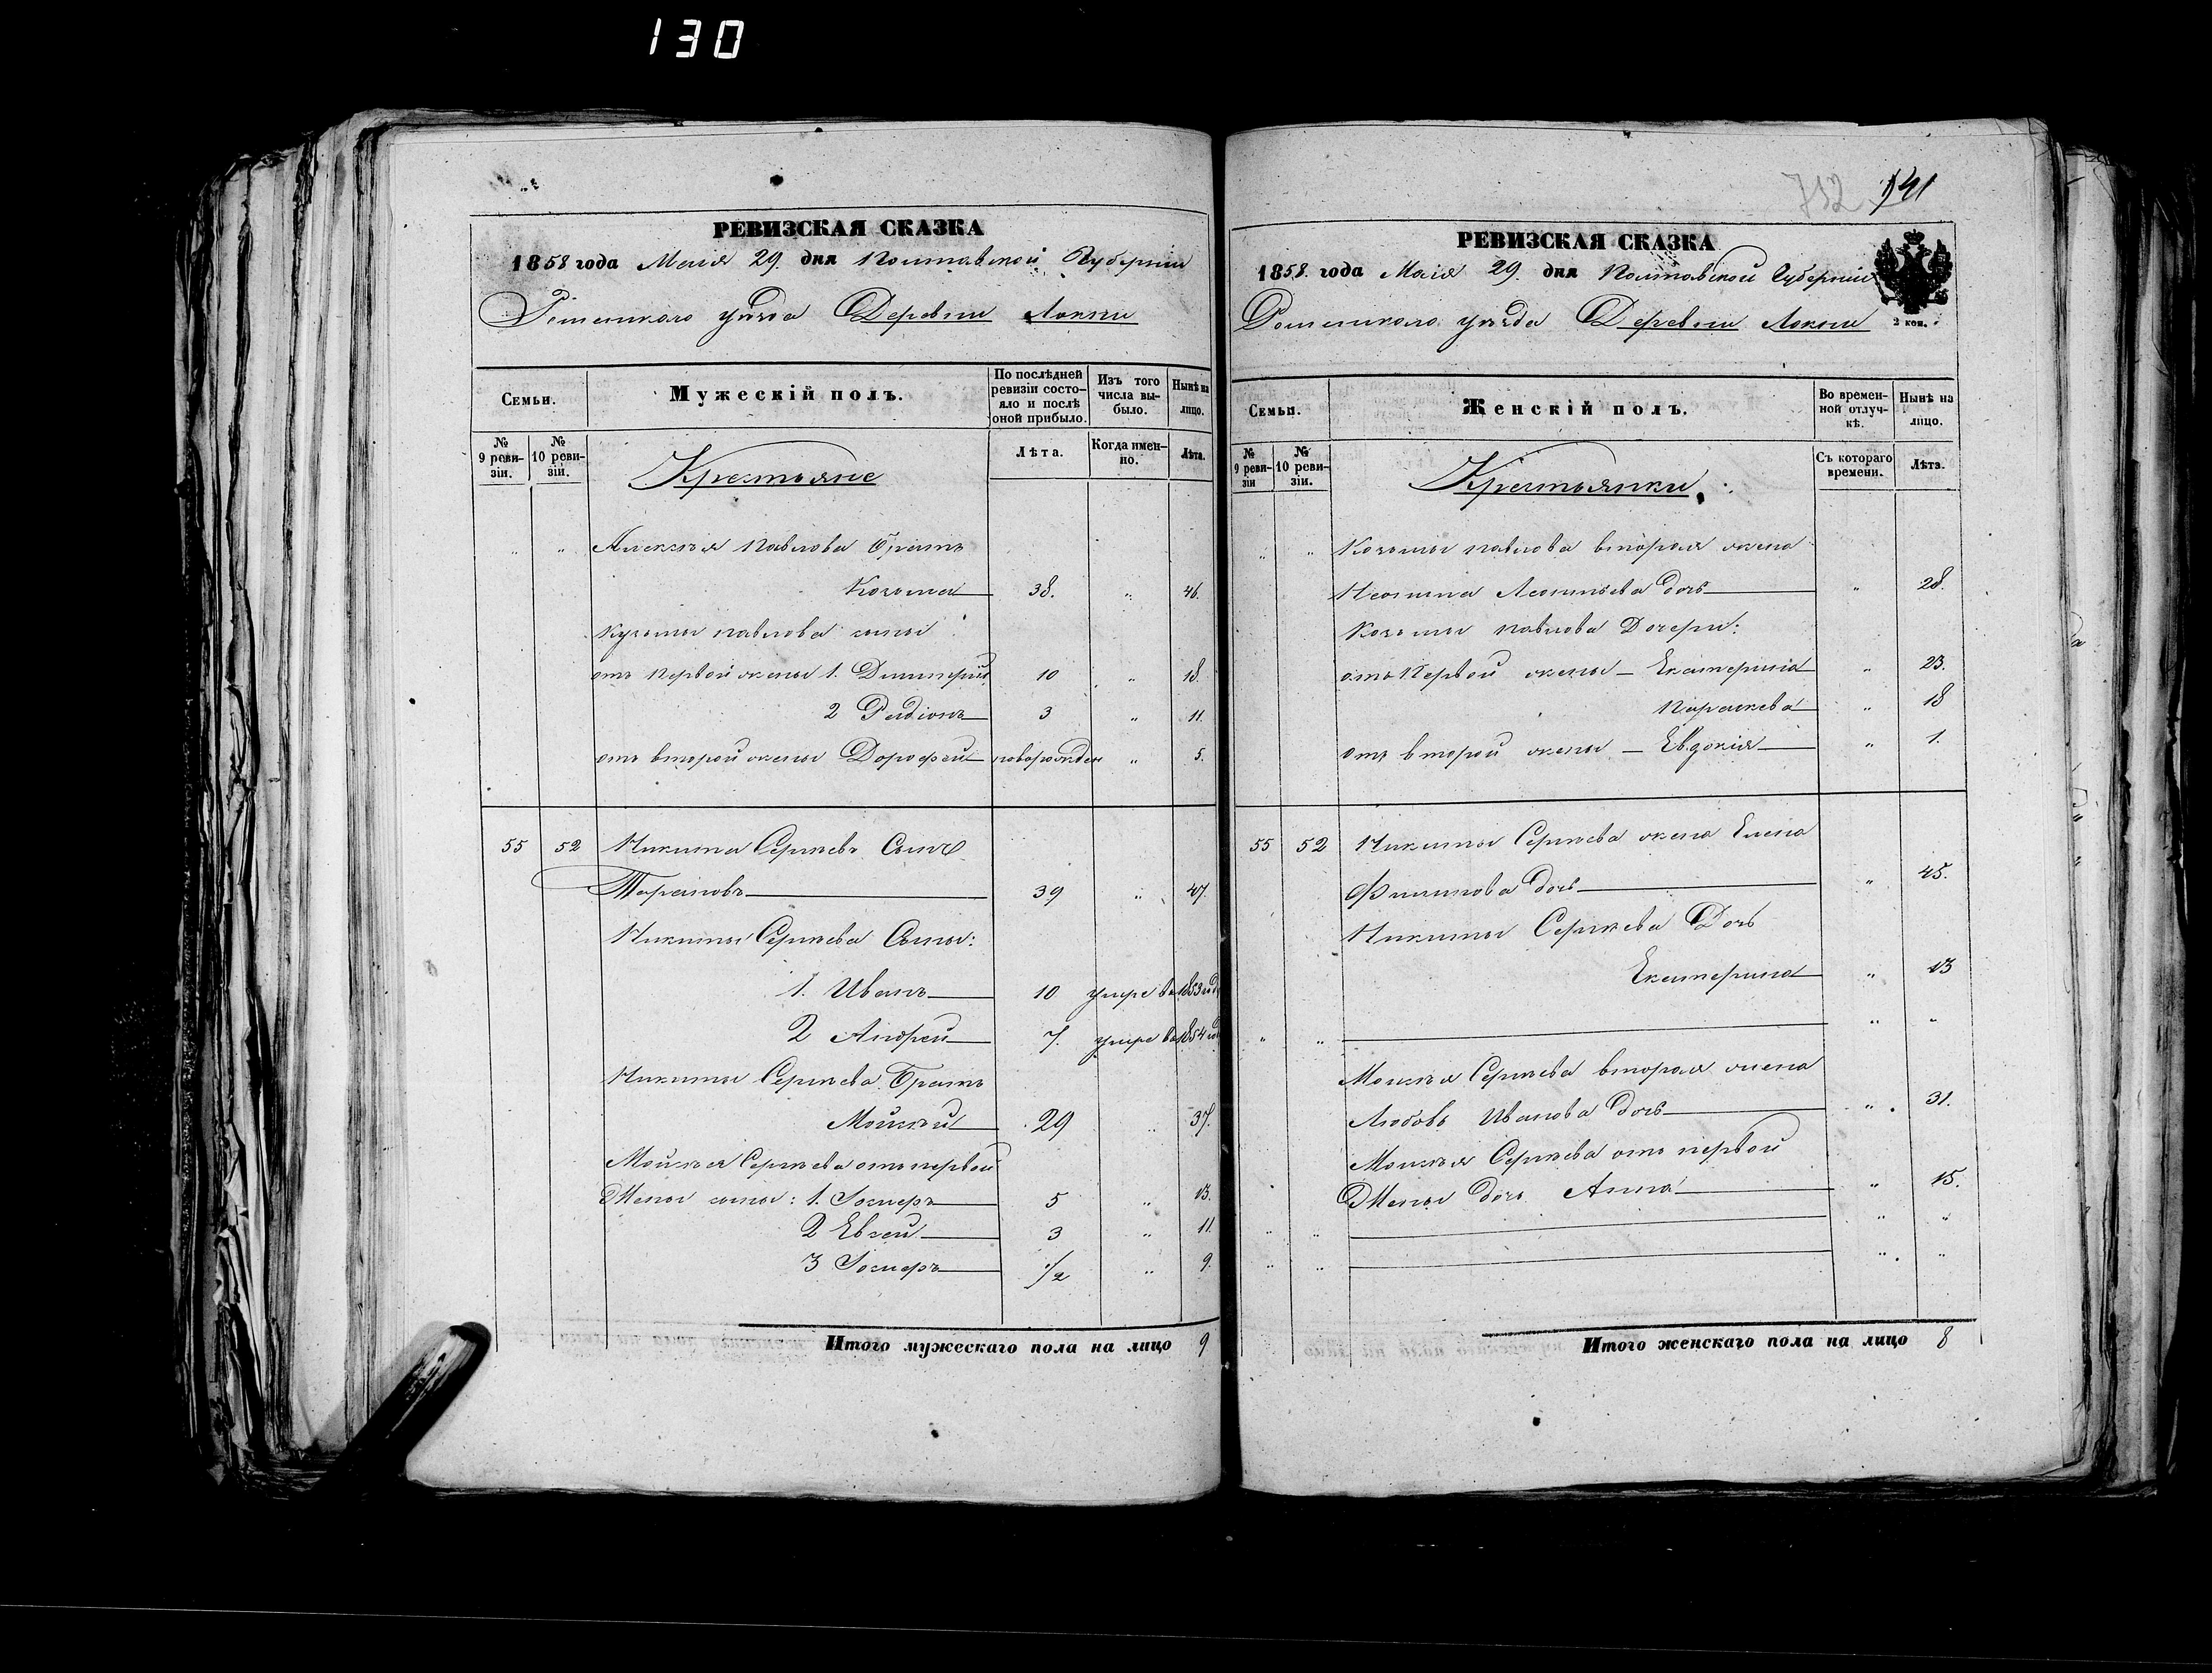 130
РЕВИЗСКАЯ СКАЗКА
1858 года Маія 29. дня Полтавской Губерніи
Роменскаго уѣзда Деревни Локни
Семьи.
Мужескій полъ.
По послѣдней ревизіи состояло и послѣ оной прибыло.
Изъ того числа выбыло.
Нынѣ на лицо.
№ 9 ревизіи.
№ 10 ревизіи.
Крестьяне
Лѣта.
Когда именно.
Лѣта.
" " Алексѣя Павлова Братъ
Козьма 38. " 46.
Кузьмы Павлова сыны
отъ Первой жены 1. Димитрій 10 " 18.
2 Радіонъ 3 " 11.
отъ второй жены Дорофей новорожден " 5.
55 52 Никита Сергѣевъ Сынъ
Тарановъ 39 " 47.
Никиты Сергѣева Сыны:
1. Иванъ 10 умре въ 1853 год
2 Андрей 7. умре въ 1854 год
Никиты Сергѣева Братъ
Мойсѣй 29 " 37.
Мойсѣя Сергѣева отъ первой
Жены сыны: 1. 5 " 13.
2 Евсей 3 " 11.
3 1/2 " 9.
Итого мужескаго пола на лицо 9
712 141
РЕВИЗСКАЯ СКАЗКА
1858. года Маія 29. дня Полтавской Губерніи
Роменскаго уѣзда Деревни Локни
2 коп.
Семьи.
Женскій полъ.
Во временной отлучкѣ.
Нынѣ на лицо.
№ 9 ревизіи
№ 10 ревизіи.
Крестьянки.
Съ котораго времени.
Лѣта.
" " Козьмы Павлова вторая жена
Леонтьева дочь " 28.
Козьмы Павлова Дочери:
отъ Первой жены — Екатерина " 23.
Параскева " 18
отъ второй жены — Евдокія " 1.
55 52 Никиты Сергѣева жена Елена
Филипова дочь " 45.
Никиты Сергѣева Дочь
Екатерина " 13
" " " "
Мойсѣя Сергѣева вторая жена
Любовь Иванова дочь " 31.
Мойсѣя Сергѣева отъ первой
Жены дочь Анна " 15.
" " " "
" " " "
Итого женскаго пола на лицо 8